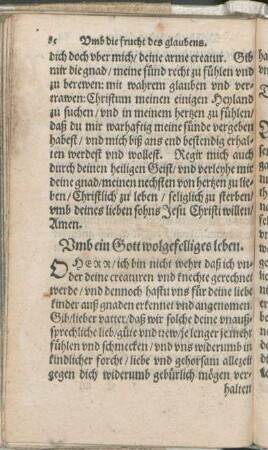 Vmb die frucht des glaubens.
dich doch vber mich/ deine arme creatur. Gib
mir die gnad/ meine sünd recht zu fühlen vnd
zu berewen: mit wahrem glauben vnd ver-
trawen: Christum meinen einigen Heyland
zu suchen/ vnd in meinem hertzen zu fühlen/
daß du mir warhafftig meine sünde vergeben
habest/ vnd mich biß ans end bestendig erhal-
ten werdest vnd wollest. Regir mich auch
durch deinen heiligen Geist/ vnd verleyhe mir
deine gnad/ meinen nechsten von hertzen zu lie-
ben/ Christlich zu leben/ seliglich zu sterben/
vmb deines lieben sohns Jesu Christi willen/
Amen.
Vmb ein Gott wolgefelliges leben.
O HERR/ ich bin nicht wehrt daß ich vn-
der deine creaturen vnd knechte gerechnet
werde/ vnd dennoch hastu vns für deine liebe
kinder auß gnaden erkennet vnd angenomen.
Gib/ lieber vatter/ daß wir solche deine vnauß-
sprechliche lieb/ güte vnd new/ je lenger je mehr
fühlen vnd schmecken/ vnd vns widerumb in
kindlicher forcht/ liebe vnd gehorsam allezeit
gegen dich widerumb gebürlich mögen ver-
halten